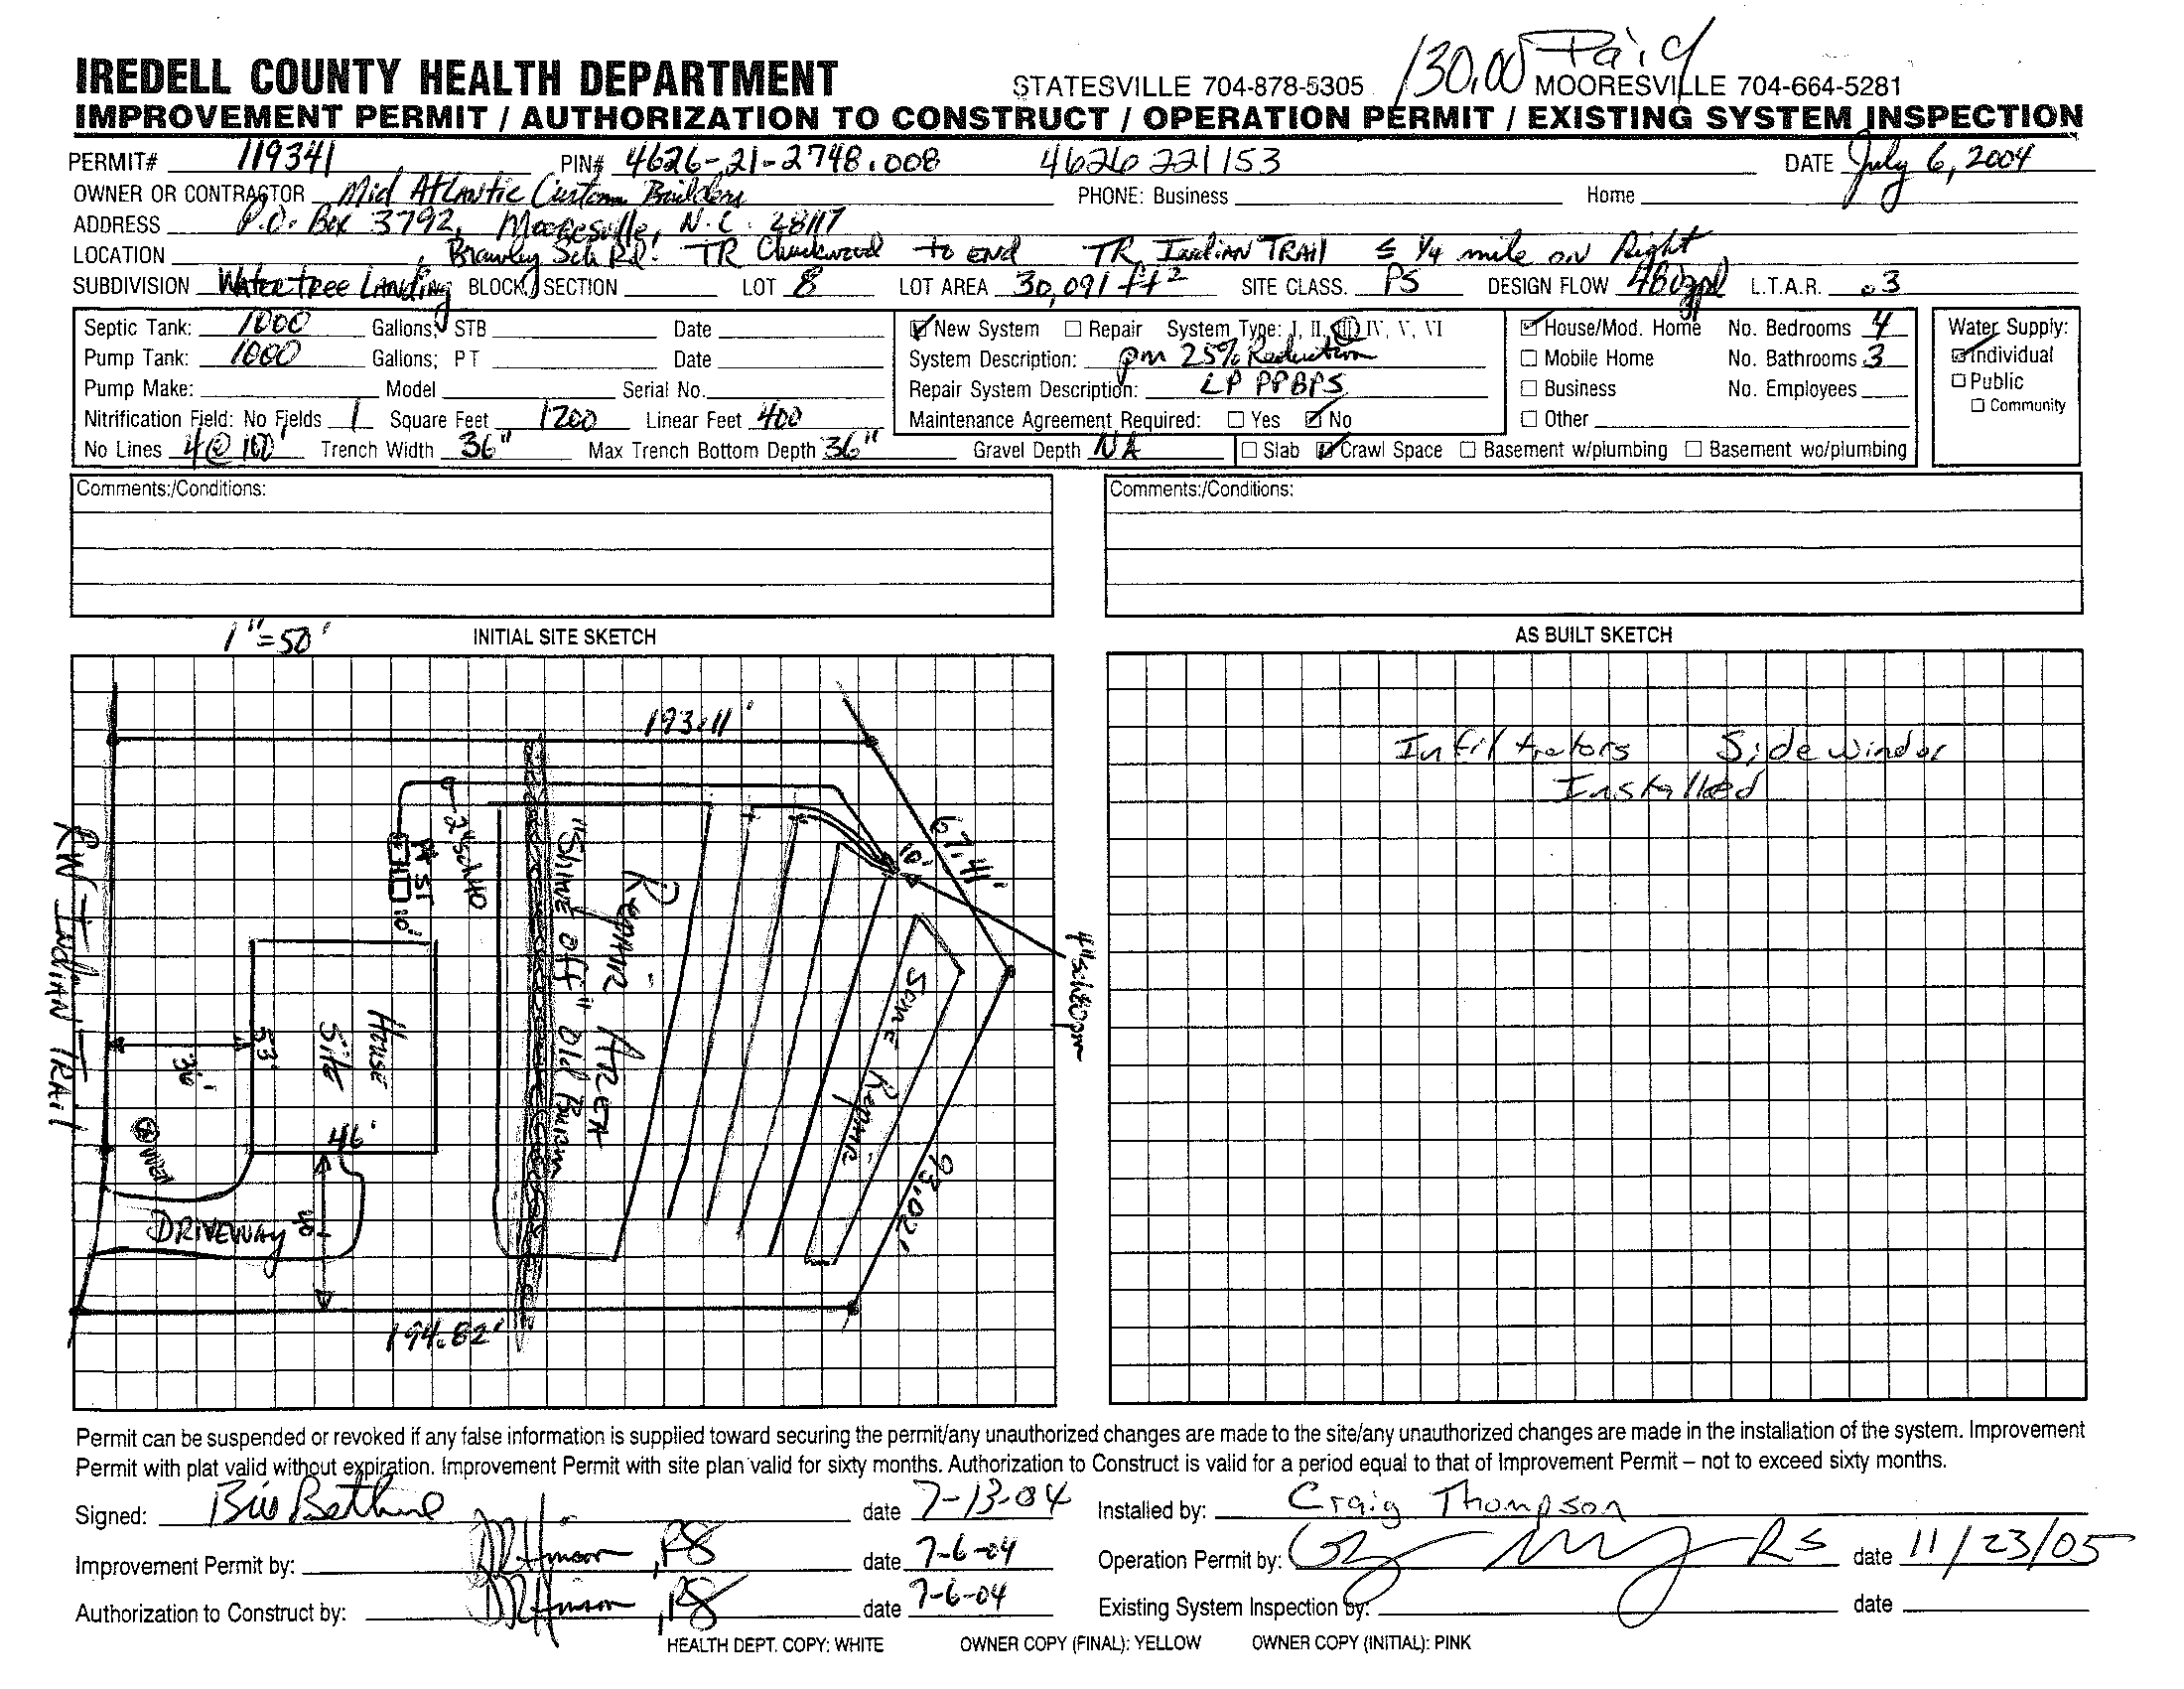 130.00 Paid
IREDELL COUNTY HEALTH DEPARTMENT STATESVILLE 704-878-5305 MOORESVILLE 704-664-5281
IMPROVEMENT PERMIT / AUTHORIZATION TO CONSTRUCT / OPERATION PERMIT / EXISTING SYSTEM INSPECTION
PERMIT# 119341 PIN# 4626-21-2748.008 4626221153 DATE July 6, 2004
OWNER OR CONTRACTOR Mid Atlantic Custom Builders PHONE: Business Home
ADDRESS P.O. Box 3792, Mooresville, N.C. 28117
LOCATION Brawley Sch Rd. TR Chuckwood to END TR Indian TRAIL ≤ 1/4 mile on Right
SUBDIVISION Watertree Landing BLOCK/SECTION LOT 8 LOT AREA 30,091 ft² SITE CLASS. PS DESIGN FLOW 480gpd L.T.A.R. .3
Septic Tank: 1000 Gallons; STB Date New System Repair System Type: I, II, III, IV, V, VI House/Mod. Home No. Bedrooms 4 Water Supply:
Pump Tank: 1000 Gallons; PT Date System Description: pm 25% Reduction Mobile Home No. Bathrooms 3 Individual
Pump Make: Model Serial No. Repair System Description: LP PPBPS Business No. Employees Public
Nitrification Field: No Fields 1 Square Feet 1200 Linear Feet 400 Maintenance Agreement Required: Yes No Other Community
No Lines 4@100' Trench Width 36" Max Trench Bottom Depth 36" Gravel Depth NA Slab Crawl Space Basement w/plumbing Basement wo/plumbing
Comments:/Conditions: Comments:/Conditions:
1"=50' INITIAL SITE SKETCH AS BUILT SKETCH
193.11'
Infiltrators Sidewinder
Installed
67.41'
10'
2" Sch 40
PT ST
10'
"Shave off" Old Burm
Repair AREA
Some Repair
4" sch40pm
R/W Indian TRAIL
House Site
53'
36'
46'
93.02'
DRIVEWAY
40'
194.82'
Permit can be suspended or revoked if any false information is supplied toward securing the permit/any unauthorized changes are made to the site/any unauthorized changes are made in the installation of the system. Improvement
Permit with plat valid without expiration. Improvement Permit with site plan valid for sixty months. Authorization to Construct is valid for a period equal to that of Improvement Permit – not to exceed sixty months.
Signed: Bill Bethune date 7-13-04 Installed by: Craig Thompson
Improvement Permit by: DR Hinson, RS date 7-6-04 Operation Permit by: RS date 11/23/05
Authorization to Construct by: DR Hinson, RS date 7-6-04 Existing System Inspection by: date
HEALTH DEPT. COPY: WHITE OWNER COPY (FINAL): YELLOW OWNER COPY (INITIAL): PINK